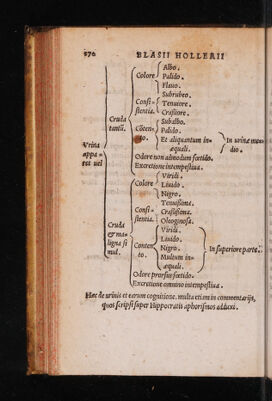 270 BLASII HOLLERII
Albo.
Colore Palido.
Flauo.
Subrubeo.
Consi- Tenuiore.
stentia. Crassiore.
Cruda
tantũ.
Subalbo.
Cõten- Palido.
to. Et aliquantum in-
æquali.
In urinæ me-
dio.
Odore non admodum fœtido.
Excretione intempestiua.
Vrina
appa-
ret uel
Viridi.
Colore Liuido.
Nigro.
Tenuissima.
Consi- Crassissima.
stentia. Oleaginosa.
Cruda
& ma-
ligna si-
mul.
Viridi.
Liuido.
Conten- Nigro.
to Multum in-
æquali.
In superiore parte.
Odore prorsus fœtido.
Excretione omnino intempestiua.
Hæc de urinis et earum cognitione, multa etiam in commentarijs,
quos scripsi super Hippocratis aphorismos adduxi.